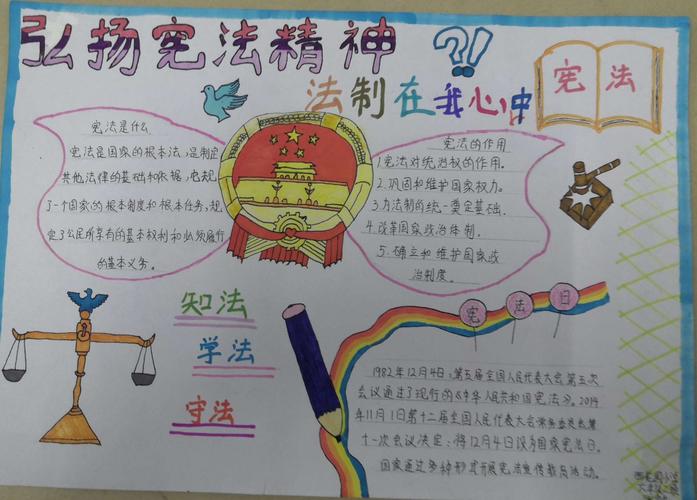 弘扬宪法精神
法制在我心中
宪法
宪法是什么
宪法是国家的根本法,是制定
其他法律的基础和依据,它规定
了一个国家的根本制度和根本任务,规
定了公民所享有的基本权利和必须履行
的基本义务。
宪法的作用
1.宪法对统治权的作用。
2.巩固和维护国家权力。
3.为法制的统一奠定基础.
4.改革国家政治体制.
5.确立和维护国家政
治制度。
知法
学法
守法
宪法日
1982年12月4日,第五届全国人民代表大会第五次
会议通过了现行的《中华人民共和国宪法》。2014
年11月1日第十二届全国人民代表大会常务委员会第
十一次会议决定:将12月4日设为国家宪法日.
国家通过多种形式开展宪法宣传教育活动。